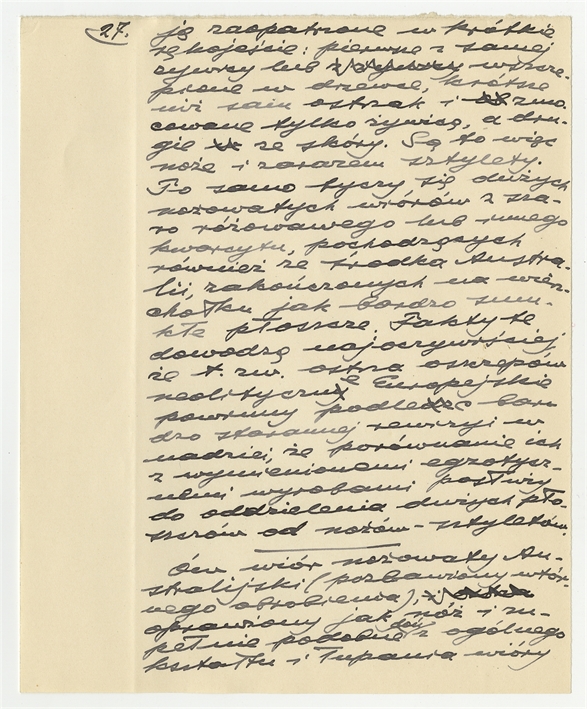 27.
ję zaopatrzone w krótkie
rękojeście: pierwsze z samej
żywicy lub z żywicy wszcze-
pione w drzewce, krótsze
niż sam ostrak i zmo-
cowane tylko żywicą, a dru-
gie ze skóry. Są to więc
noże i zarazem sztylety.
To samo tyczy się dużych
nożowatych wiórów z sza-
ro różowawego lub innego
kwarcytu, pochodzących
również ze środka Austra-
lii, zakończonych na wierz-
chołku jak bardzo smu-
kłe płoszcze. Fakty te
dowodzą najoczywiściej
że t. zw. ostrza oszczepów
neolityczne Europejskie
powinny podledz bar
dzo starannej rewizyi w
nadziei, że porównanie ich
z wymienionemi egzotycz-
nemi wyrobami posłuży
do oddzielenia dużych pło-
szczów od nożów-sztyletów.
Ów wiór nożowaty Au-
stralijski (pozbawiony wtór-
nego obrobienia),
oprawiony jak nóż i zu-
pełnie podobne z ogólnego
kształtu i łupania wióry